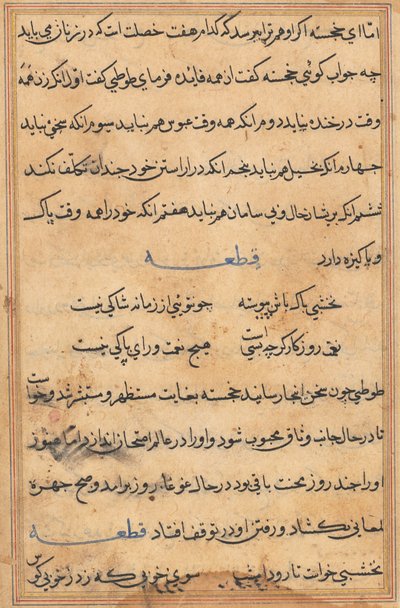 اما ای خجسته اگر او هم ترا بپرسد که کدام هفت خصلت است که در زن نازمی باید
چه جواب کوئی خجسته کفت از همه فایده فرمای طوطی کفت اول انکه زن همه
وقت در خنده نباید دوم انکه همه وقت عبوس هم نباید سیوم انکه سخی نباید
چهارم انکه بخیل هم نباید پنجم انکه در اراستن خود چندان تکلف نکند
ششم انکه پریشان حال و بی سامان هم نباید هفتم انکه خود را همه وقت پاک
و پاکیزه دارد قطعه
نخشبی پاک باش پیوسته چون توئی از زمانه شاکی نیست
نعمتی روز کار کرچه بسی است هیچ نعمت ورای پاکی نیست
طوطی چون سخن اینجا رسانید خجسته بغایت مستظهر و مستبشر شد و خواست
تا در حال جانب وثاق محبوب شود و او را در عالم امتحان اندازد اما هنوز
او را چند روز بخت باقی بود در حال غوغاء روز برامد و صبح چهره
لمعانی بکشاد و رفتن او در توقف افتاد قطعه
نخشبی خواست تا رود امشب سوی خوبی که زد ز خوبی کوس